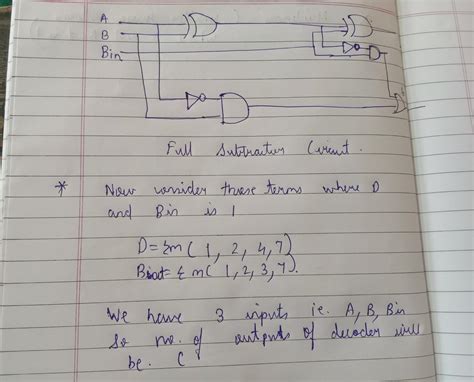 A
B
Bin
Full Subtractor Circuit.
* Now consider those terms where D
and Bin is 1
D=Σm(1, 2, 4, 7)
Bout=Σm(1,2,3,7).
We have 3 inputs ie. A, B, Bin
So no. of outputs of decoder will
be. C